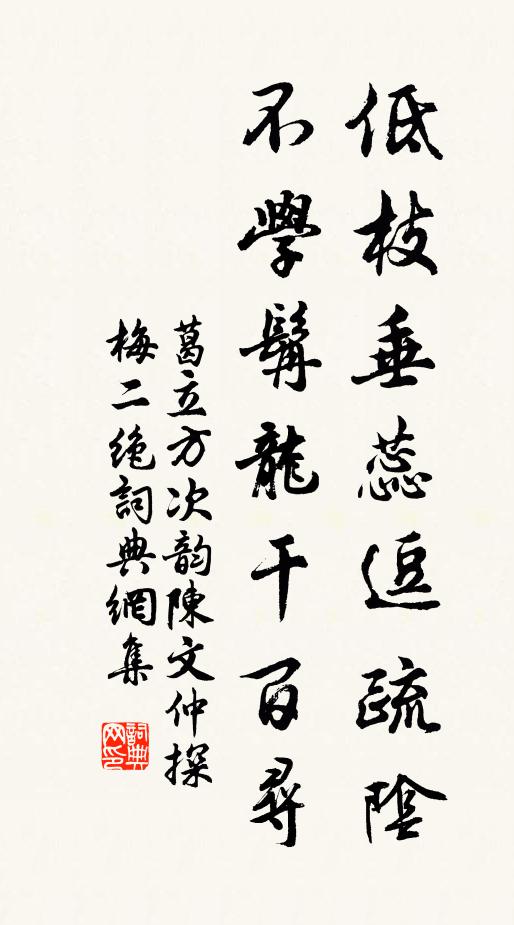 低枝垂蕊逗疏陰
不學髯龍千百尋
葛立方次韵陳文仲探
梅二绝詞典網集
詞典
网印